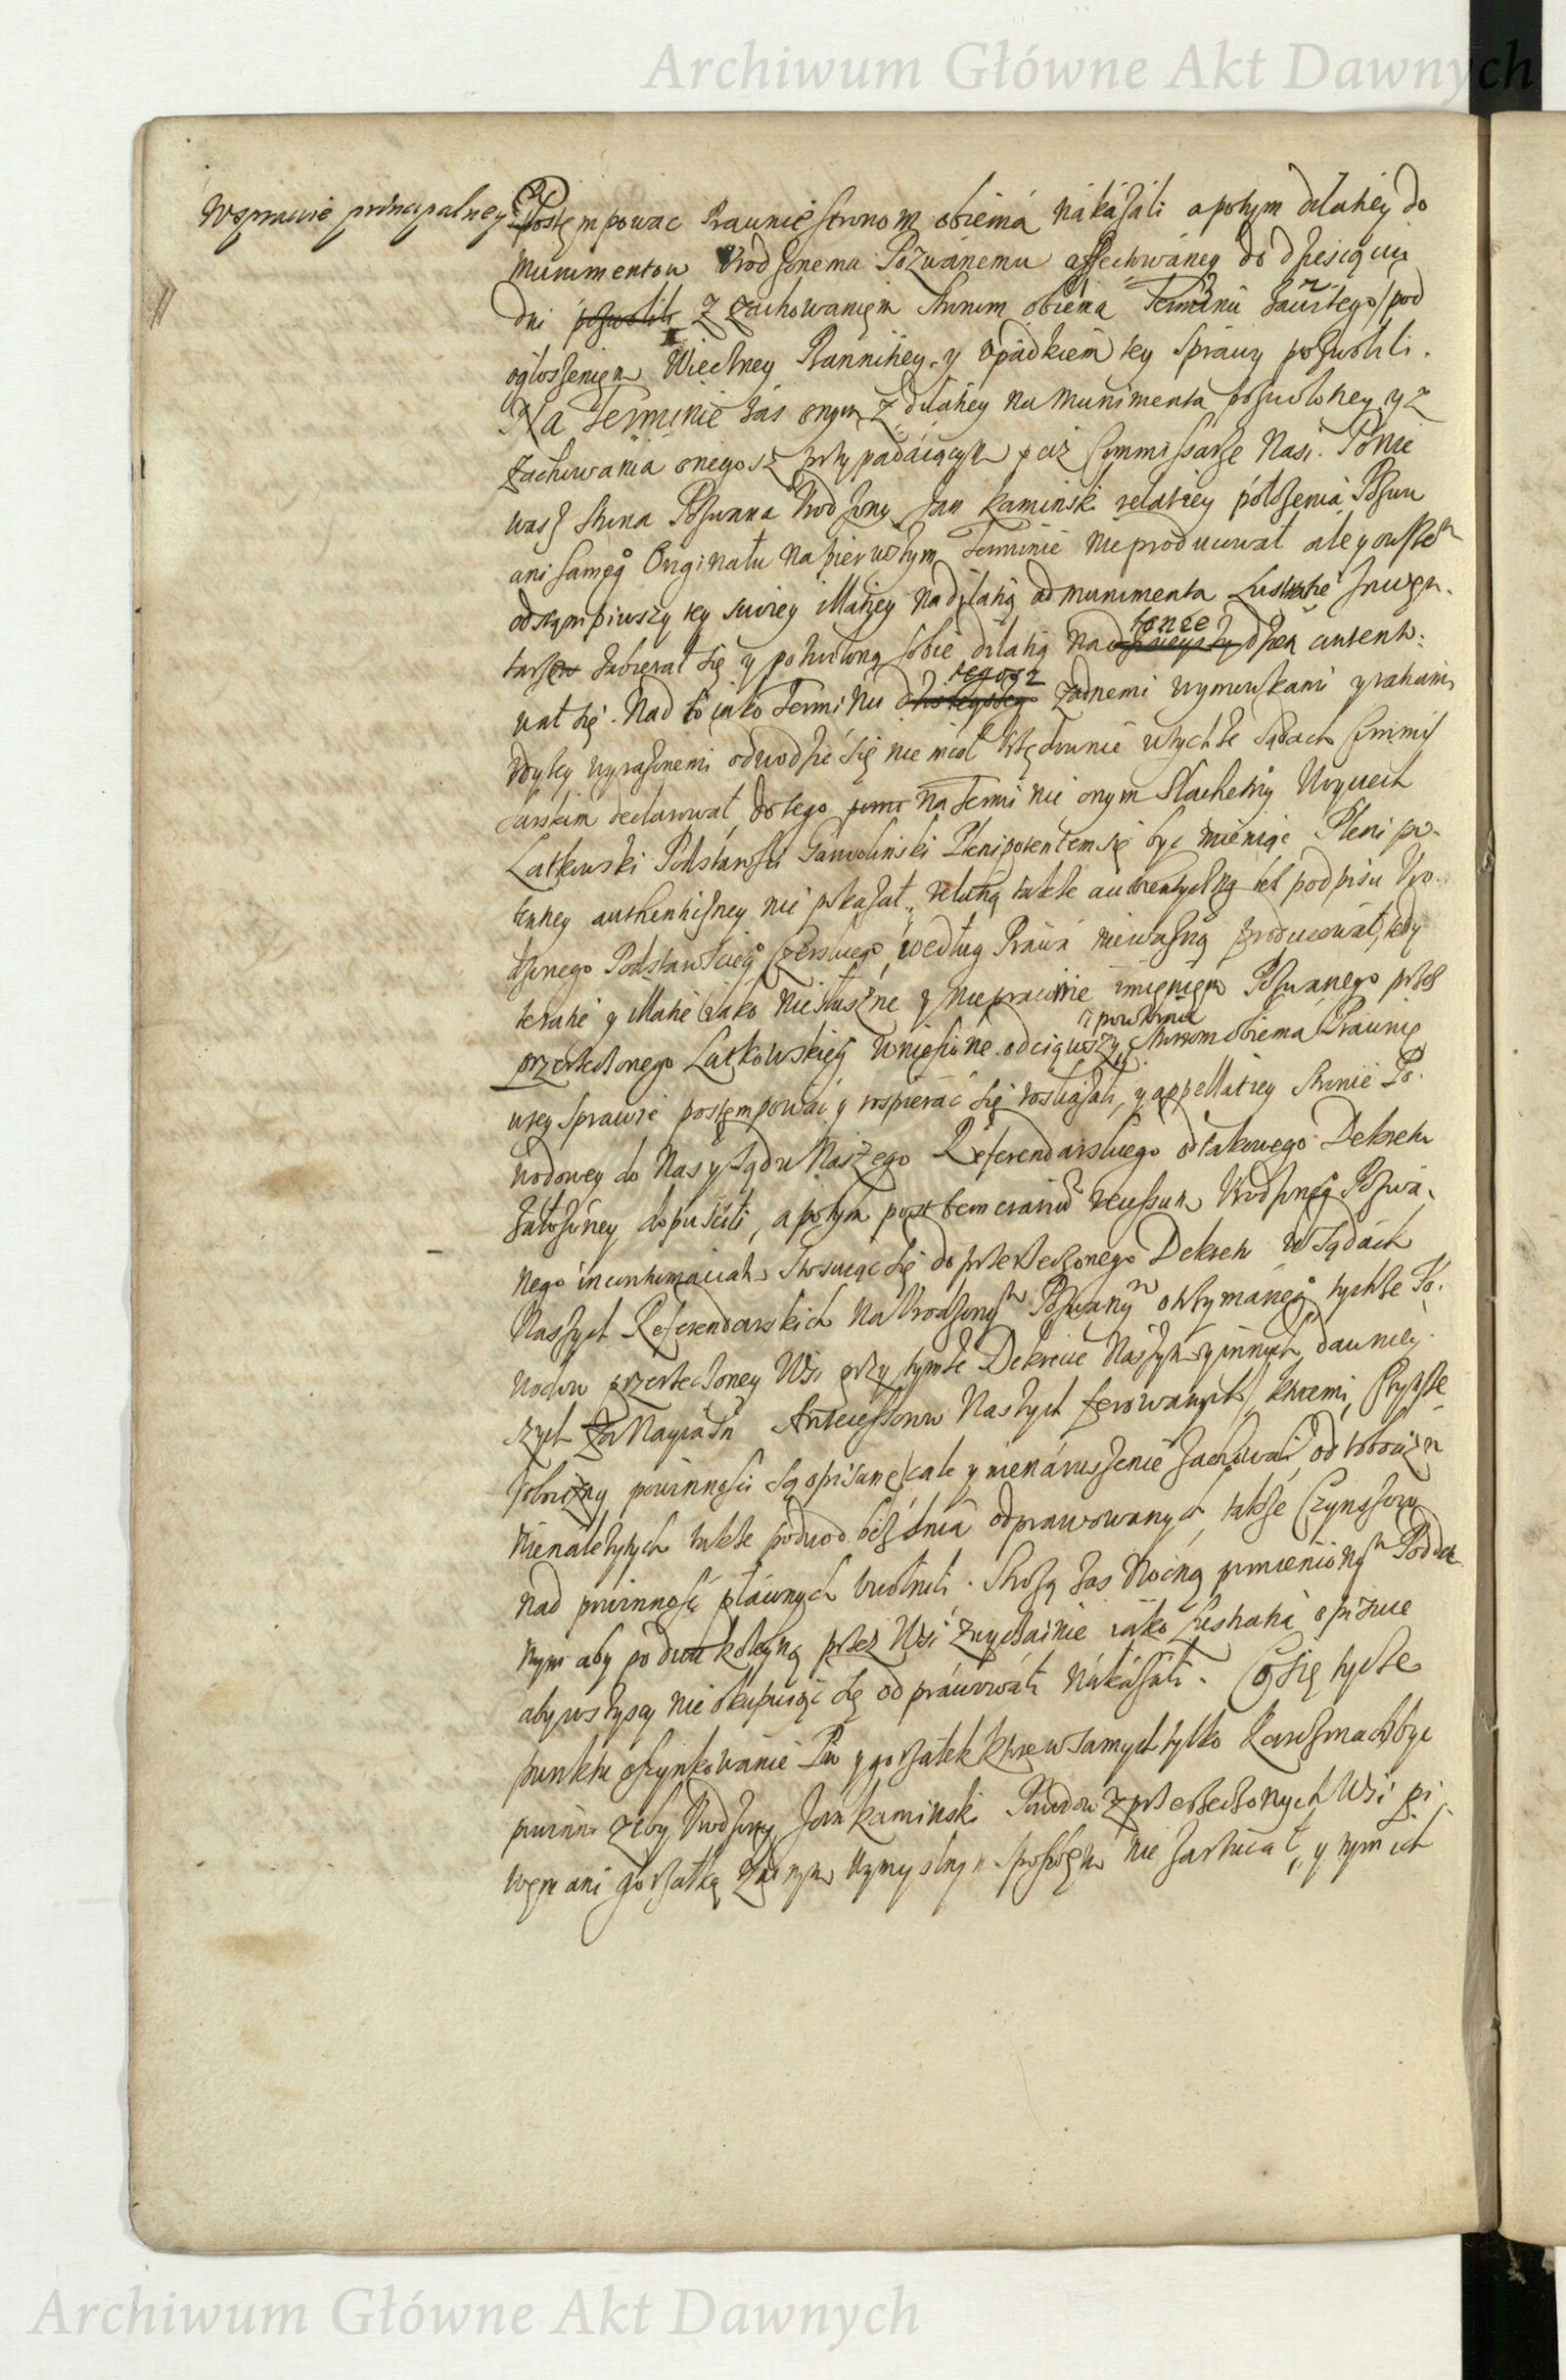 Archiwum Główne Akt Dawnych
W sprawie principalney
Postęmpowac Prawnie stronom obiema nakazali a potym dilatiey do
munimentow Urodzonemu Pozwanemu affectowaney do dziesiąciu
dni pozwolili z zachowanięm stronom obiema Terminu zawitego pod
ogłoszenięm Wieczney Pannitiey, y upadkiem tey sprawy pozwolili.
Na Terminie zas onym z dilatiey na munimenta pozwoloney y z
zachowania onegosz przypadaiącym ciz Commissarze Nasi. Ponie
wasz strona Pozwana Urodzony Jan Kaminski relatiey położenia Pozwu
ani samego Originału na pierwszym Terminie nie producował ale y owszem
odstąmpiwszy tey swoiey illatiey na dilatią ad munimenta Lustratie Inwen.
tarze zabierał się y pozwoloną sobie dilatią na tenze dzien autento.
wał się. Nad to iako Terminu tegosz żadnemi wymowkami y ratiami
wyzey wyrażonemi odwodzić się nie miał Urzędownie w tychże Sądach Commis
sarskim declarował, do tego na Terminie onym Slachetny Woyciech
Latkowski Podstarosci Garwolinski Plenipotentem się byc mieniąc Pleni po.
tentiey authentyczney nie pokazał, relatią także autentyczną bez podpisu Uro
dzonego Podstarosciego Czerskiego według Prawa nieważną producował, tedy
te ratie y illatie iako niesłuszne y nieprawnie imienięm Pozwanego przez
przerzeczonego Latkowskiego wniesione odciąwszy, i powtornie stronom obiema Prawnie
w tey sprawie postęmpować y rospierać się roskazali, y appellatiey stronie Po.
wodowey do Nas y Sądu Naszego Referendarskiego od takowego Dekretu
założoney dopuścili, a potym post temerarium recessum Urodzonego Pozwa.
nego in contumaciam stosuiąc się do przerzeczonego Dekretu w Sądach
Naszych Referendarskich na Urodzonym Pozwanym otrzymanego tychże Po.
wodow przerzeczoney Wsi przy tymże Dekrecie Naszym y innych dawniey.
szych za Nayiasn Antecessorow Naszych ferowanych, ktoremi Czynsze
robocizny powinnosci są opisane cale y nienaruszenie zachowali, od robocizn
nienależytych także podwod bez dnia odprawowanych, także Czynszow
nad powinność płaconych uwolnili. Strożą zas Nocną pomienionym Podda
nym aby po dwu koleyną przez Wsi zwyczainie iako Lustratia opisuie
aby wszyscy nie okupuiąc się odprawowali nakazali. Co się tycze
punktu oszynkowanie Piw y gorzałek ktore w samych tylko Karczmach być
powinno zeby Urodzony Jan Kaminski Powodow z przerzeczonych Wsi pi
wem ani gorzałką żadnym wymyslnym sposobem nie zarzucał, y tym ich
Archiwum Główne Akt Dawnych